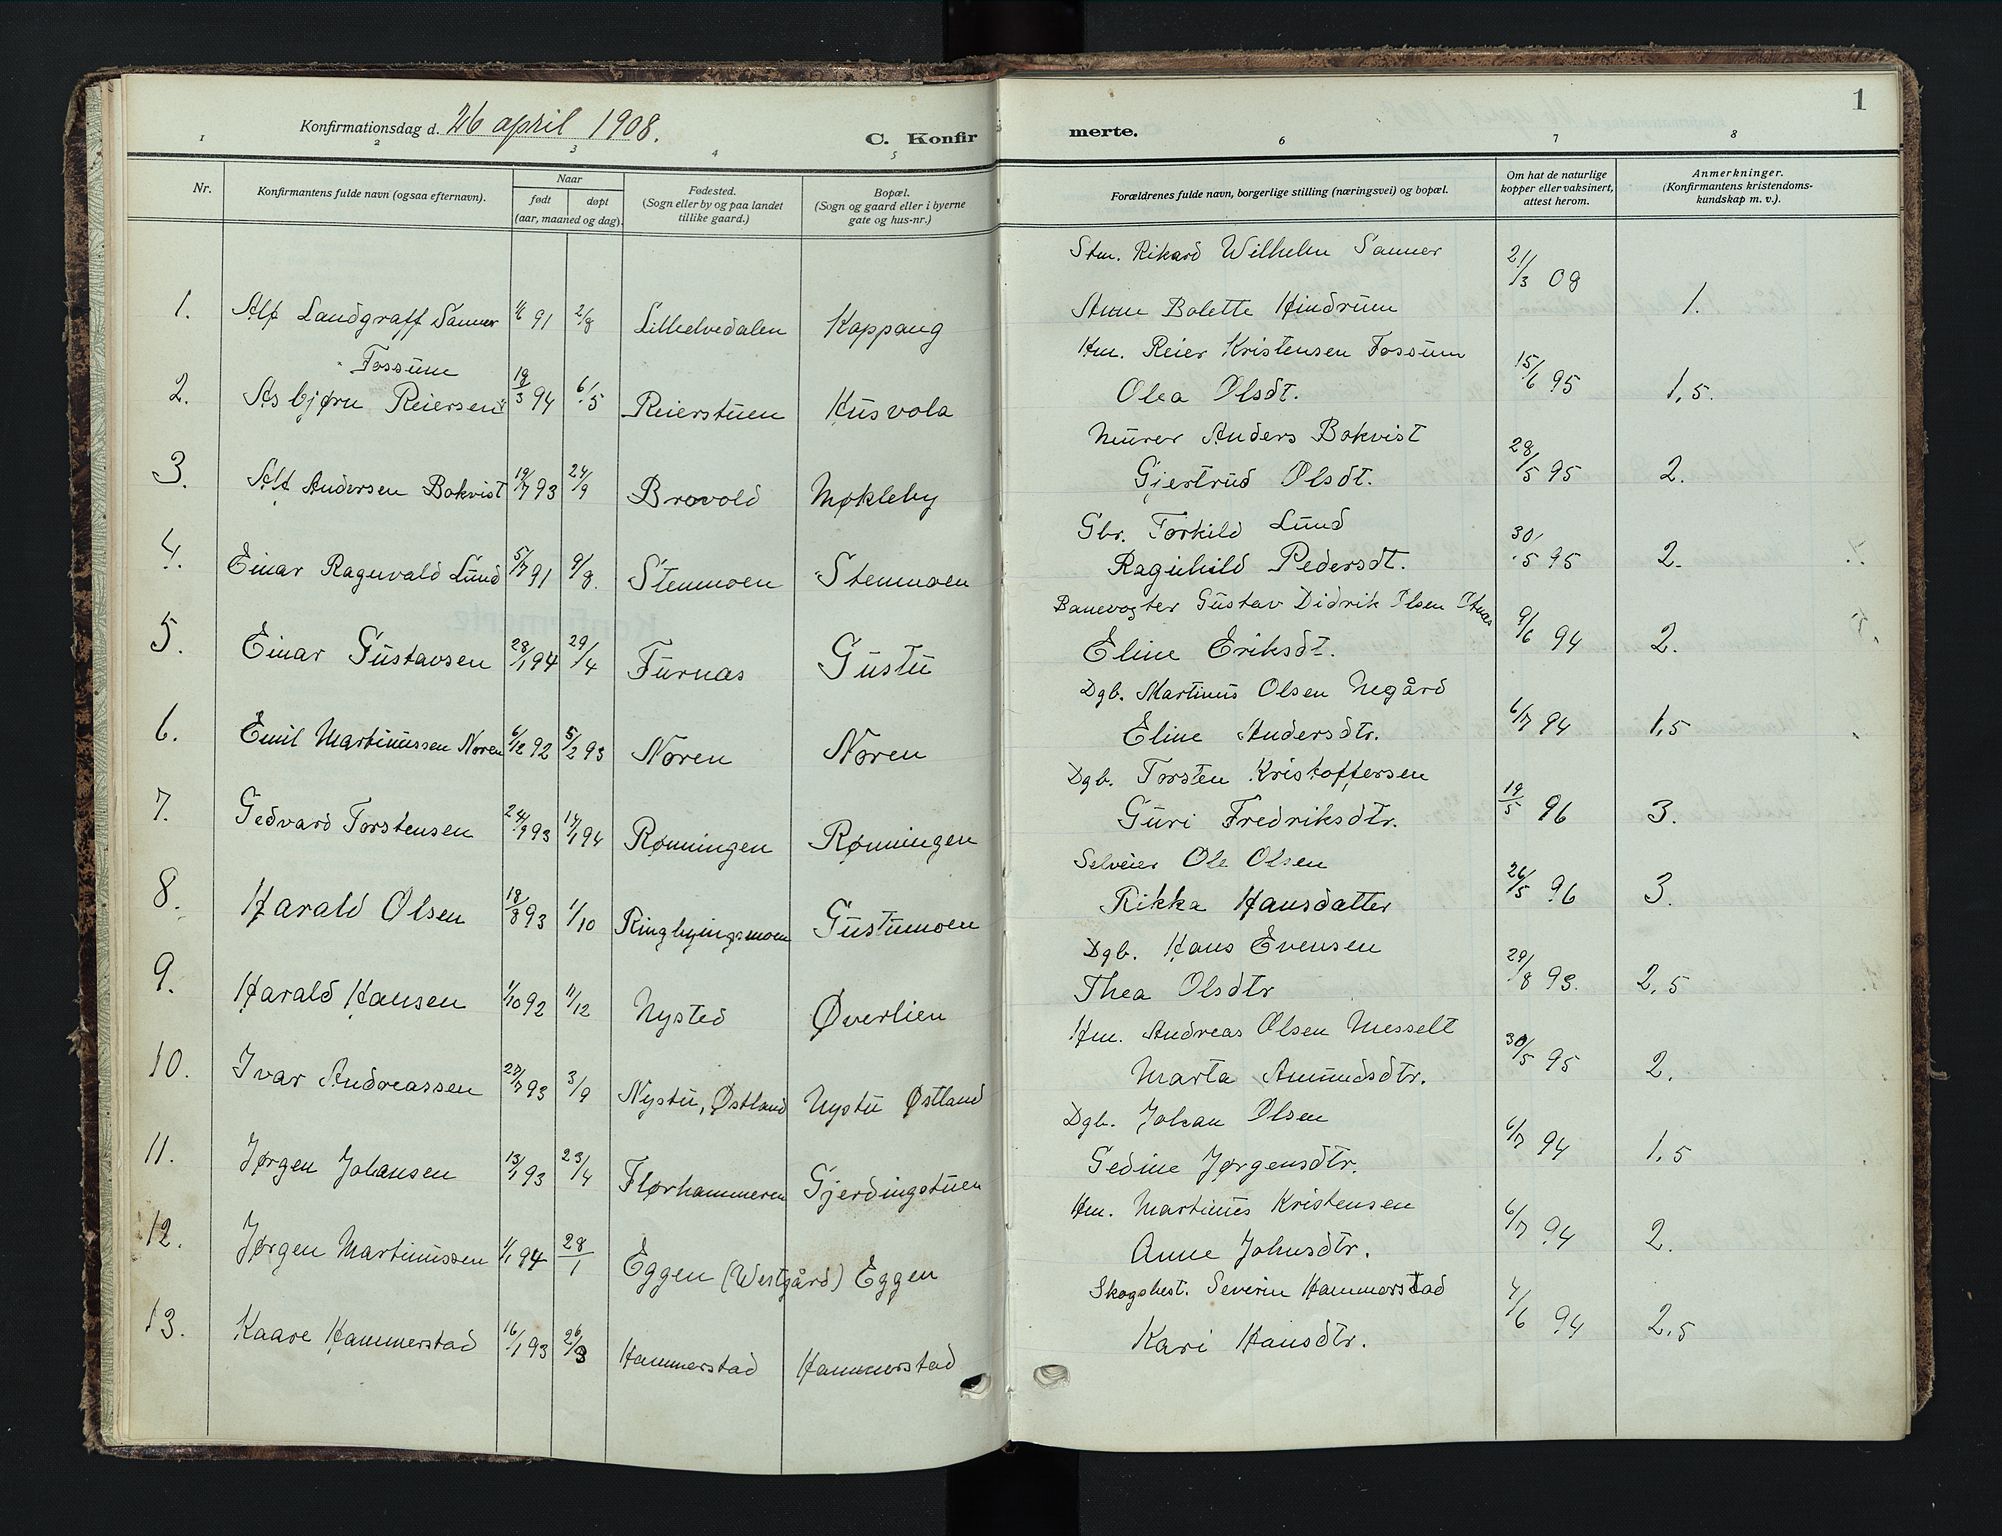 Konfirmationsdag d. 26 april 1908.
C. Konfirmerte.
1
1 2 3 4 5 6 7 8
Nr.
Konfirmantens fulde navn (ogsaa efternavn).
Naar
født døpt
(aar, maaned og dag).
Fødested.
(Sogn eller by og paa landet
tillike gaard.)
Bopæl.
(Sogn og gaard eller i byerne
gate og hus-nr.)
Forældrenes fulde navn, borgerlige stilling (næringsvei) og bopæl.
Om hat de naturlige
kopper eller vaksinert,
attest herom.
Anmerkninger.
(Konfirmantens kristendoms-
kundskap m. v.).
Stm. Rikard Wilhelm Sanner
1. Alf Landgraff Sanner 91 2/8 Lilleelvedalen Koppang Anne Bolette Hindrum 21/3 08 1.
Fossum Hm. Reier Kristensen Fossum
2. Asbjørn Reiersen 18/3 94 6/5 Reierstuen Husvola Olea Olsdt. 15/6 95 1,5.
Murer Anders Bokvist
3. Alf Andersen Bokvist 19/7 93 24/9 Brovold Møkleby Gjertrud Olsdt. 28/5 95 2.
Gbr. Torkild Lund
4. Einar Ragnvald Lund 5/7 91 9/8. Stenmoen Stenmoen Ragnhild Pedersdt. 30/5 95 2.
Banevogter Gustav Didrik Olsen
5. Einar Gustavsen 28/1 94 29/4 Furnas Gustu Eline Eriksdt. 9/6 94 2.
Dgb. Martinus Olsen Negård
6. Emil Martinussen Noren 6/12 92 5/2 93 Noren Noren Eline Andersdtr. 6/7 94 1,5
Dgb. Torsten Kristoffersen
7. Gedvard Torstensen 24/9 93 14/1 94 Rønningen Rønningen Guri Fredriksdtr. 19/5 96 3.
Selveier Ole Olsen
8. Harald Olsen 18/8 93 1/10 Ringbyingsmoen Gustumoen Rikka Hansdatter 26/5 96 3.
Dgb. Hans Evensen
9. Harald Hansen 1/10 92 11/12 Nysted Øverlien Thea Olsdtr 29/8 93. 2,5
Hm. Andreas Olsen Messelt
10. Ivar Andreassen 27/7 93 3/9 Nystu, Østland Nystu Østland Marta Amundsdtr. 30/5 95 2.
Dgb. Johan Olsen
11. Jørgen Johansen 13/1 93 23/4 Florhammeren Gjerdingstuen Gedine Jørgensdtr. 6/7 94 1,5
Hm. Martinus Kristensen
12. Jørgen Martinussen 1/1 94 28/1 Eggen (Westgård) Eggen Anne Johnsdtr. 6/7 94 2.
Skogsbest. Severin Hammerstad
13. Kaare Hammerstad 16/1 93 26/3 Hammerstad Hammerstad Kari Hansdtr. 4/6 94 2,5